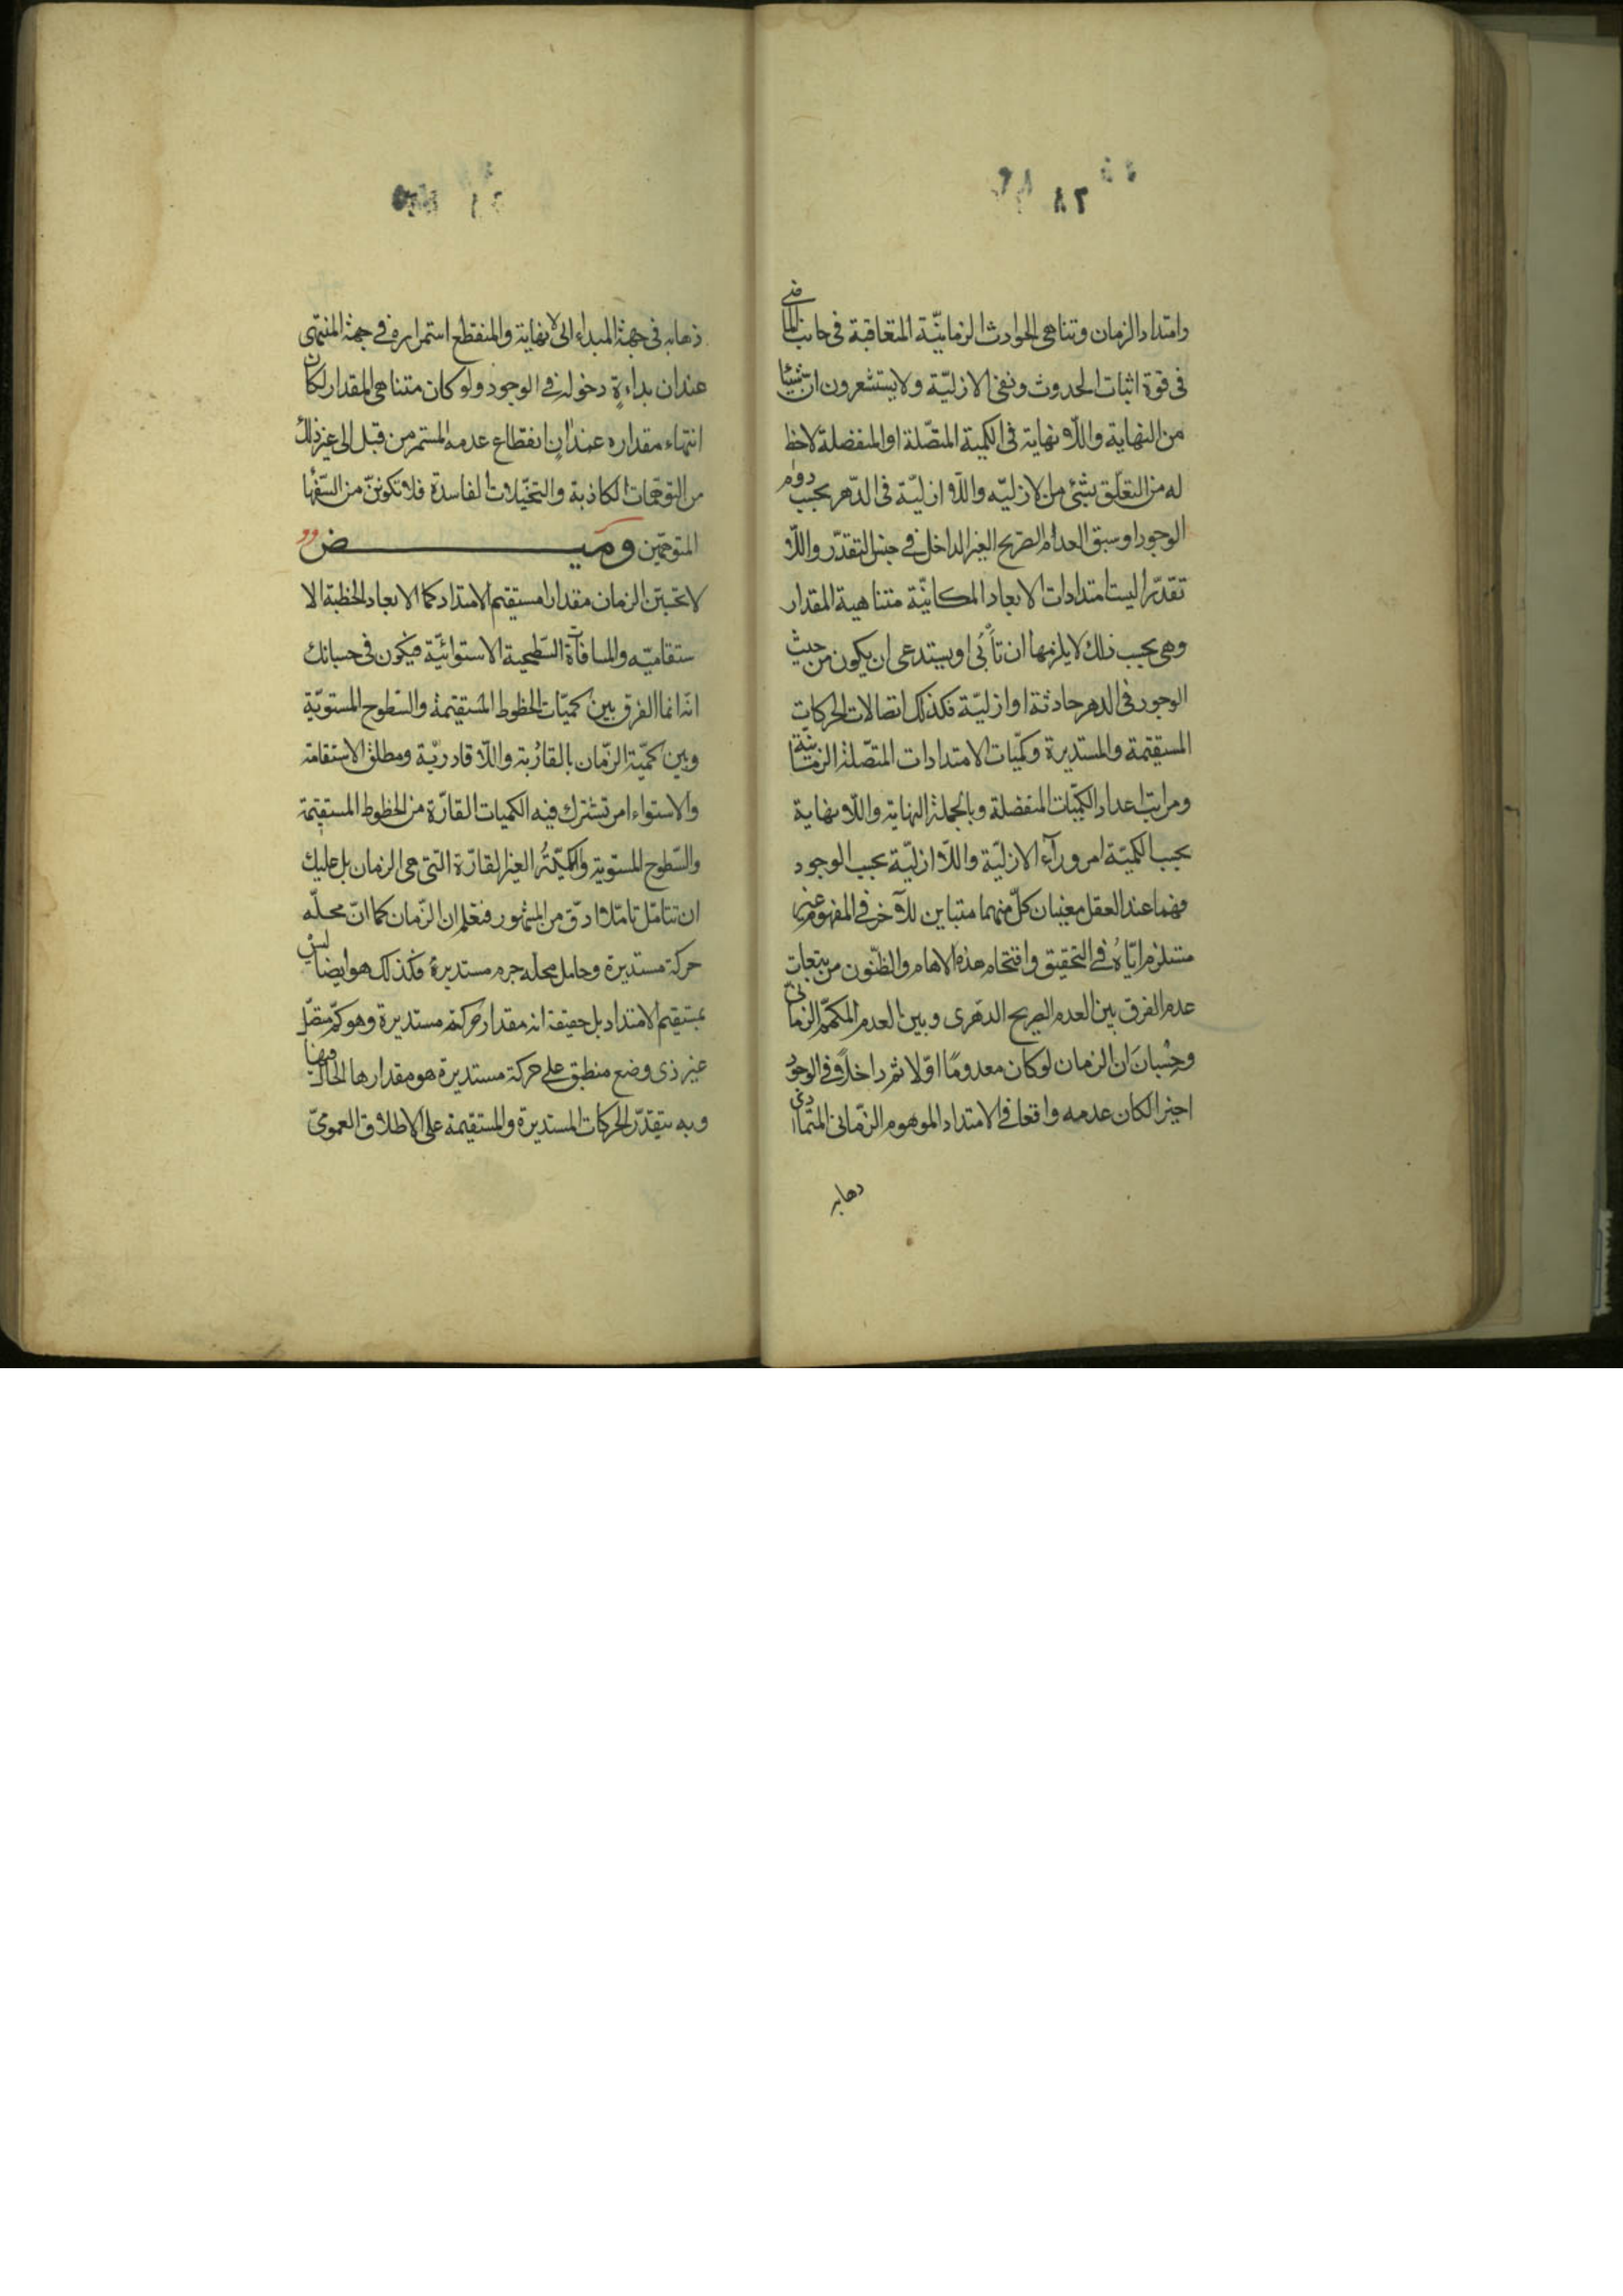 وامتداد الزمان وتناهى الحوادث الزمانيّة المتعاقبة فى جانب الماضى
فى قوة اثبات الحدوث ونفى الازليّة ولا يستشعرون ان شيئا
من النهاية واللّا نهاية فى الكمية المتصّلة او المنفصلة لاحظ
له من التعلّق بشئ من الازليّه واللّا ازليّة فى الدّهر بحسب دوام
الوجود او سبق العدم الصريح الغير الداخل فى جنس التقدّر واللّا
تقدّر اليست امتدادات الابعاد المكانيّة متناهية المقدار
وهى بحسب ذلك لا يلزمها ان تأبى او يستدعى ان يكون من حيث
الوجود فى الدهر حادثة او ازليّة فكذلك اتصالات الحركات
المستقيمة والمستديرة وكمّيات الامتدادات المتصّلة الزمانية
ومراتب اعداد الكميّات المنفصلة وبالجملة النهاية واللّا نهاية
بحسب الكميّة امر ورآء الازليّة واللّا ازليّة بحسب الوجود
فهما عند العقل معنيان كلّ منهما متباين للآخر فى المفهوم غير
مستلزم ايّاهُ فى التحقيق واقتحام هذه الاهام والظّنون من تبعات
عدم الفرق بين العدم الصريح الدهرى وبين العدم المكمّم الزمانى
وحِسْبان انَ الزمان لو كان معدومًا اوّلا ثم داخلاً فى الوجود
اخيرا لكان عدمه واقعا فى الامتداد الموهوم الزمّانى المتمادى
دهابه
ذهابه فى جهة المبداء الى لا نهاية والمنقطع استمراره فى جهة المنتهى
عند ان بداءةٍ دخوله فى الوجود ولو كان متناهى المقدار لكان
انتهاء مقداره عند انٍ انقطاع عدمه المستمر من قبل الى غير ذلك
من التوهّمات الكاذبة والتخيّلات الفاسدة فلا تكوننّ من السّفها
المتوهّمين وميـــــض
لا تحسبّن الزمان مقدارا مستقيم الامتداد كما الابعاد الخطية الا
ستقاميّه والمسافاة السّطحية الاستوائيّة فيكون فى حسبانك
انّه انما الفرق بين كميّات الخطوط المستقيمة والسّطوح المستويّة
وبين كميّة الزّمان بالقارّية واللّا قارّيّة ومطلق الاستقامة
والاستواء امر تشترك فيه الكميات القارّة من الخطوط المستقيمة
والسّطوح المستوية والكميّةُ الغير القارّة التّى هى الزمان بل عليك
ان تتامّل تامّلا ادقّ من المشهور فتعلم ان الزّمان كما انّ محلّه
حركة مستديرة وحامل محله جرم مستديرة فكذلك هو ايضا ليس
بمستقيم الامتداد بل حقيقة انه مقدار حركة مستديرة وهو كمّ متصّل
غير ذى وضع منطبق على حركة مستديرة هو مقدارها الحال فيها
وبه يتقدّر الحركات المستديرة والمستقيمة على الاطلاق العمومىّ